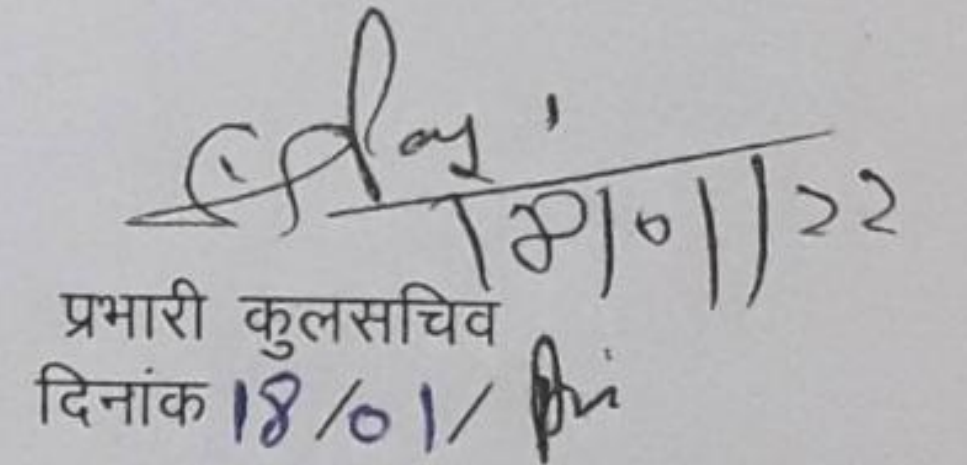 18/01/22
प्रभारी कुलसचिव
दिनांक 18/01/